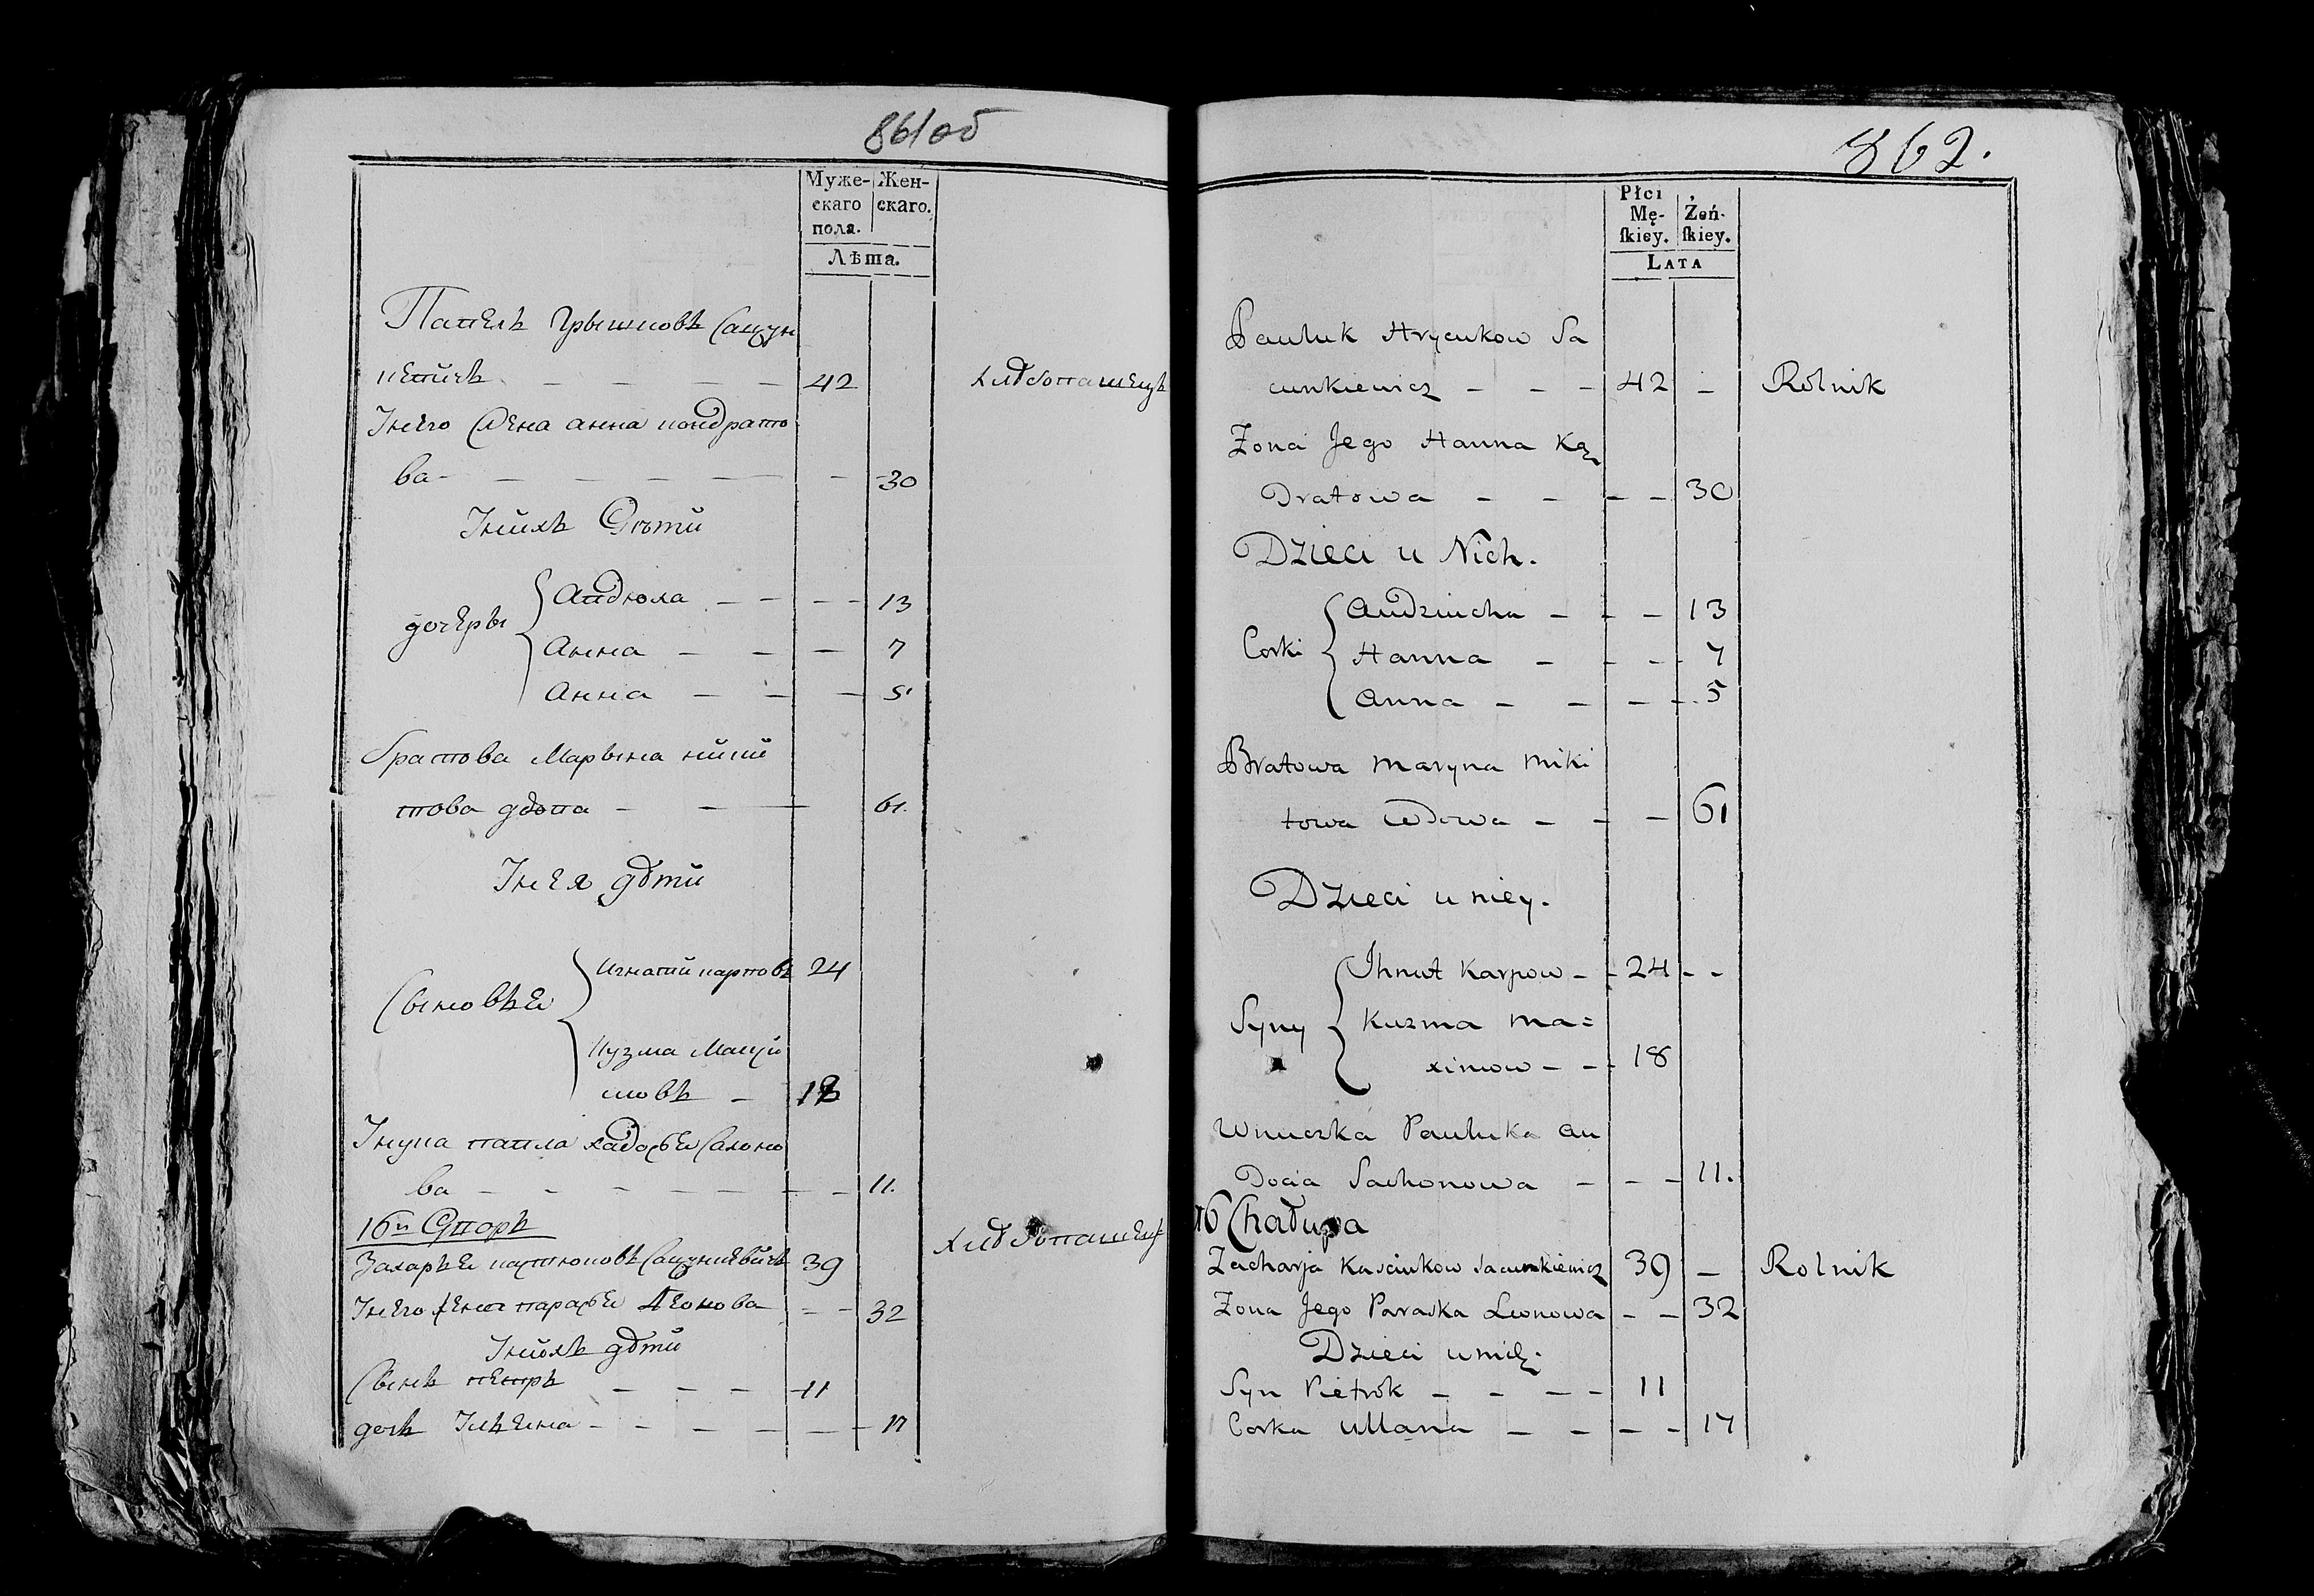 861об
Муже-
скаго
пола.
Жен-
скаго.
Лѣта.
Павелъ Грышковъ Сацун
кевичъ - - - - - 42 хлѣбопашецъ
Унего жена анна кондрато
ва - - - - - - 30
Унихъ Дѣти
дочеры
Авдюха - - - - 13
Анна - - - 7
Анна - - - 5
братова Марына мики
това вдова - - 61.
Унея дѣти
Сыновъя
Игнатий карповъ 24
Кузма Макси
мовъ - 18
Унука павла хадосья Сахоно
ва - - - - - - - 11.
16й Дворъ
Захарья касюковъ Сацункевичъ 39 хлѣбопашецъ
Унего жена парасья Леонова - - 32
Унихъ дѣти
Сынъ петръ - - - 11
дочъ Улъяна - - - - - - 17
862.
Płci
Mę-
ſkiey.
Żeń-
ſkiey.
LATA
Pauluk Hrycukow Sa
cunkiewicz - - - 42 - Rolnik
Zona Jego Hanna Ką
Dratowa - - - - 30
Dzieci u Nich.
Corki
Audziucha - - - 13
Hanna - - - - 7
Anna - - - - 5
Bratowa Maryna Miki
towa wdowa - - - 61
Dzieci u niey.
Syny
Ihnat Karpow - - 24 - -
Kuzma Ma=
ximow - - - 18
Wnuczka Pauluka Au
Docia Sachonowa - - - 11.
16 Chałupa
Zacharja Kasciukow Sacunkiewicz 39 - Rolnik
Zona Jego Paraska Leonowa - - 32
Dzieci u nich.
Syn Pietrok - - - - 11
Corka Ullana - - - - 17